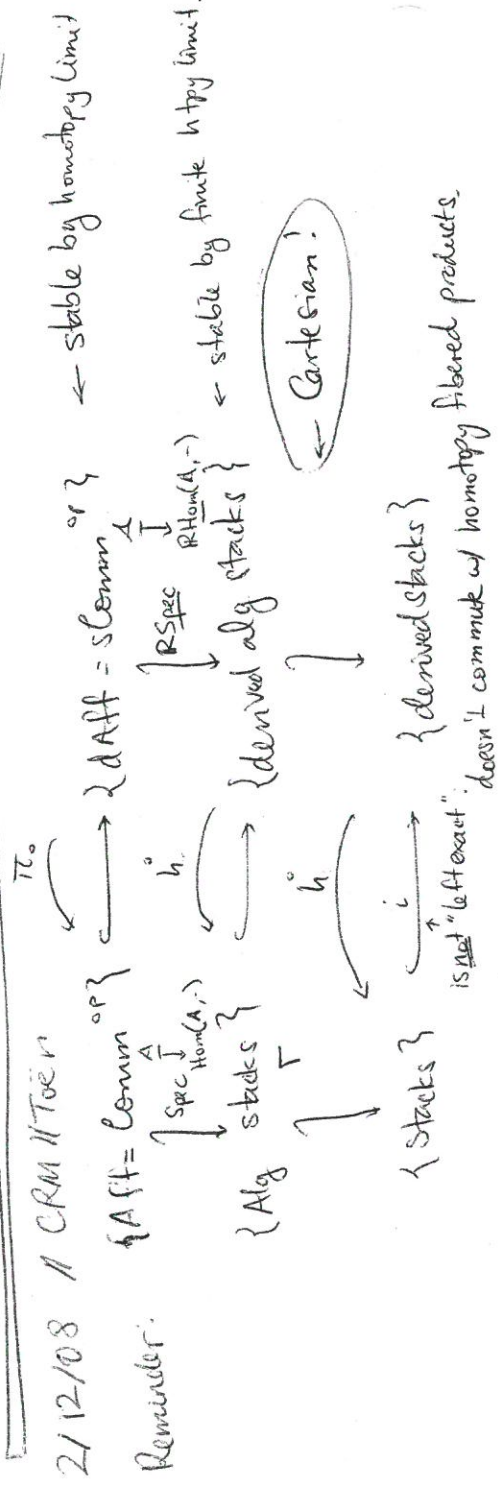 2/12/08 // CRM // Toën
Reminder:
π₀
{Aff = Comm^op} ↪ {dAff = sComm^op} ← stable by homotopy limit
Spec A ↧ Hom(A,-) h° RSpec A ↧ RHom(A,-)
{Alg stacks} ↪ {derived alg stacks} ← stable by finite htpy limit.
h° ← Cartesian!
{Stacks} ↪ i {derived stacks}
is not "left exact":
doesn't commute w/ homotopy fibered products.